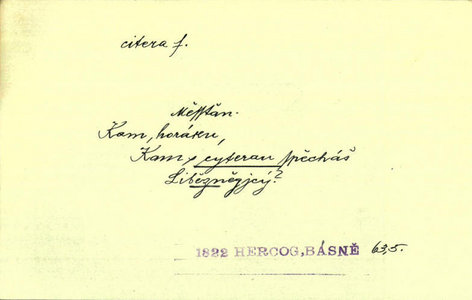 citera f.
Měſſťan.
Kam, horáku,
Kam s cyterau spěcháš
Libězněgcý?
1822 HERCOG, BÁSNĚ 63,5.